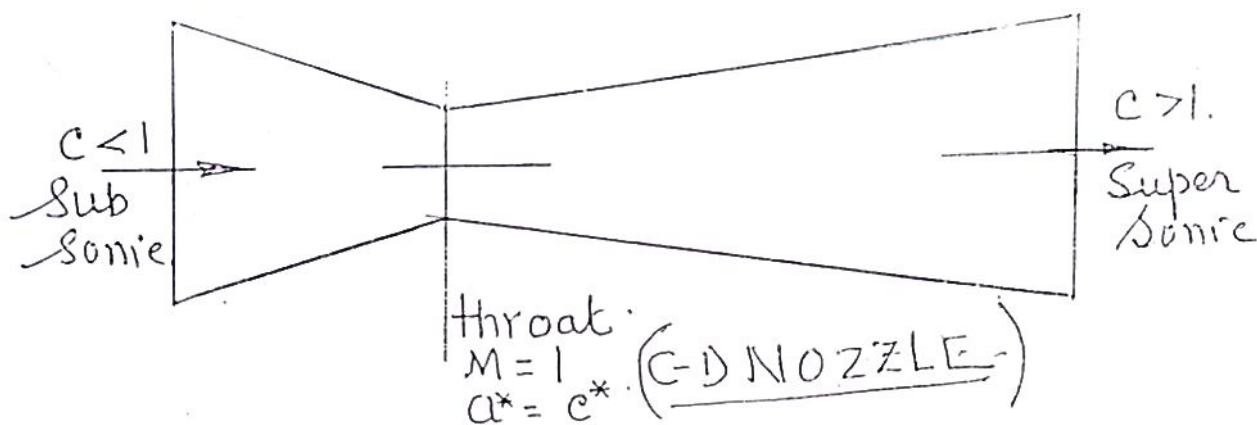 C < 1
Sub
Sonic
C > 1.
Super
Sonic
throat.
M = 1
a* = c*. (C-D NOZZLE)